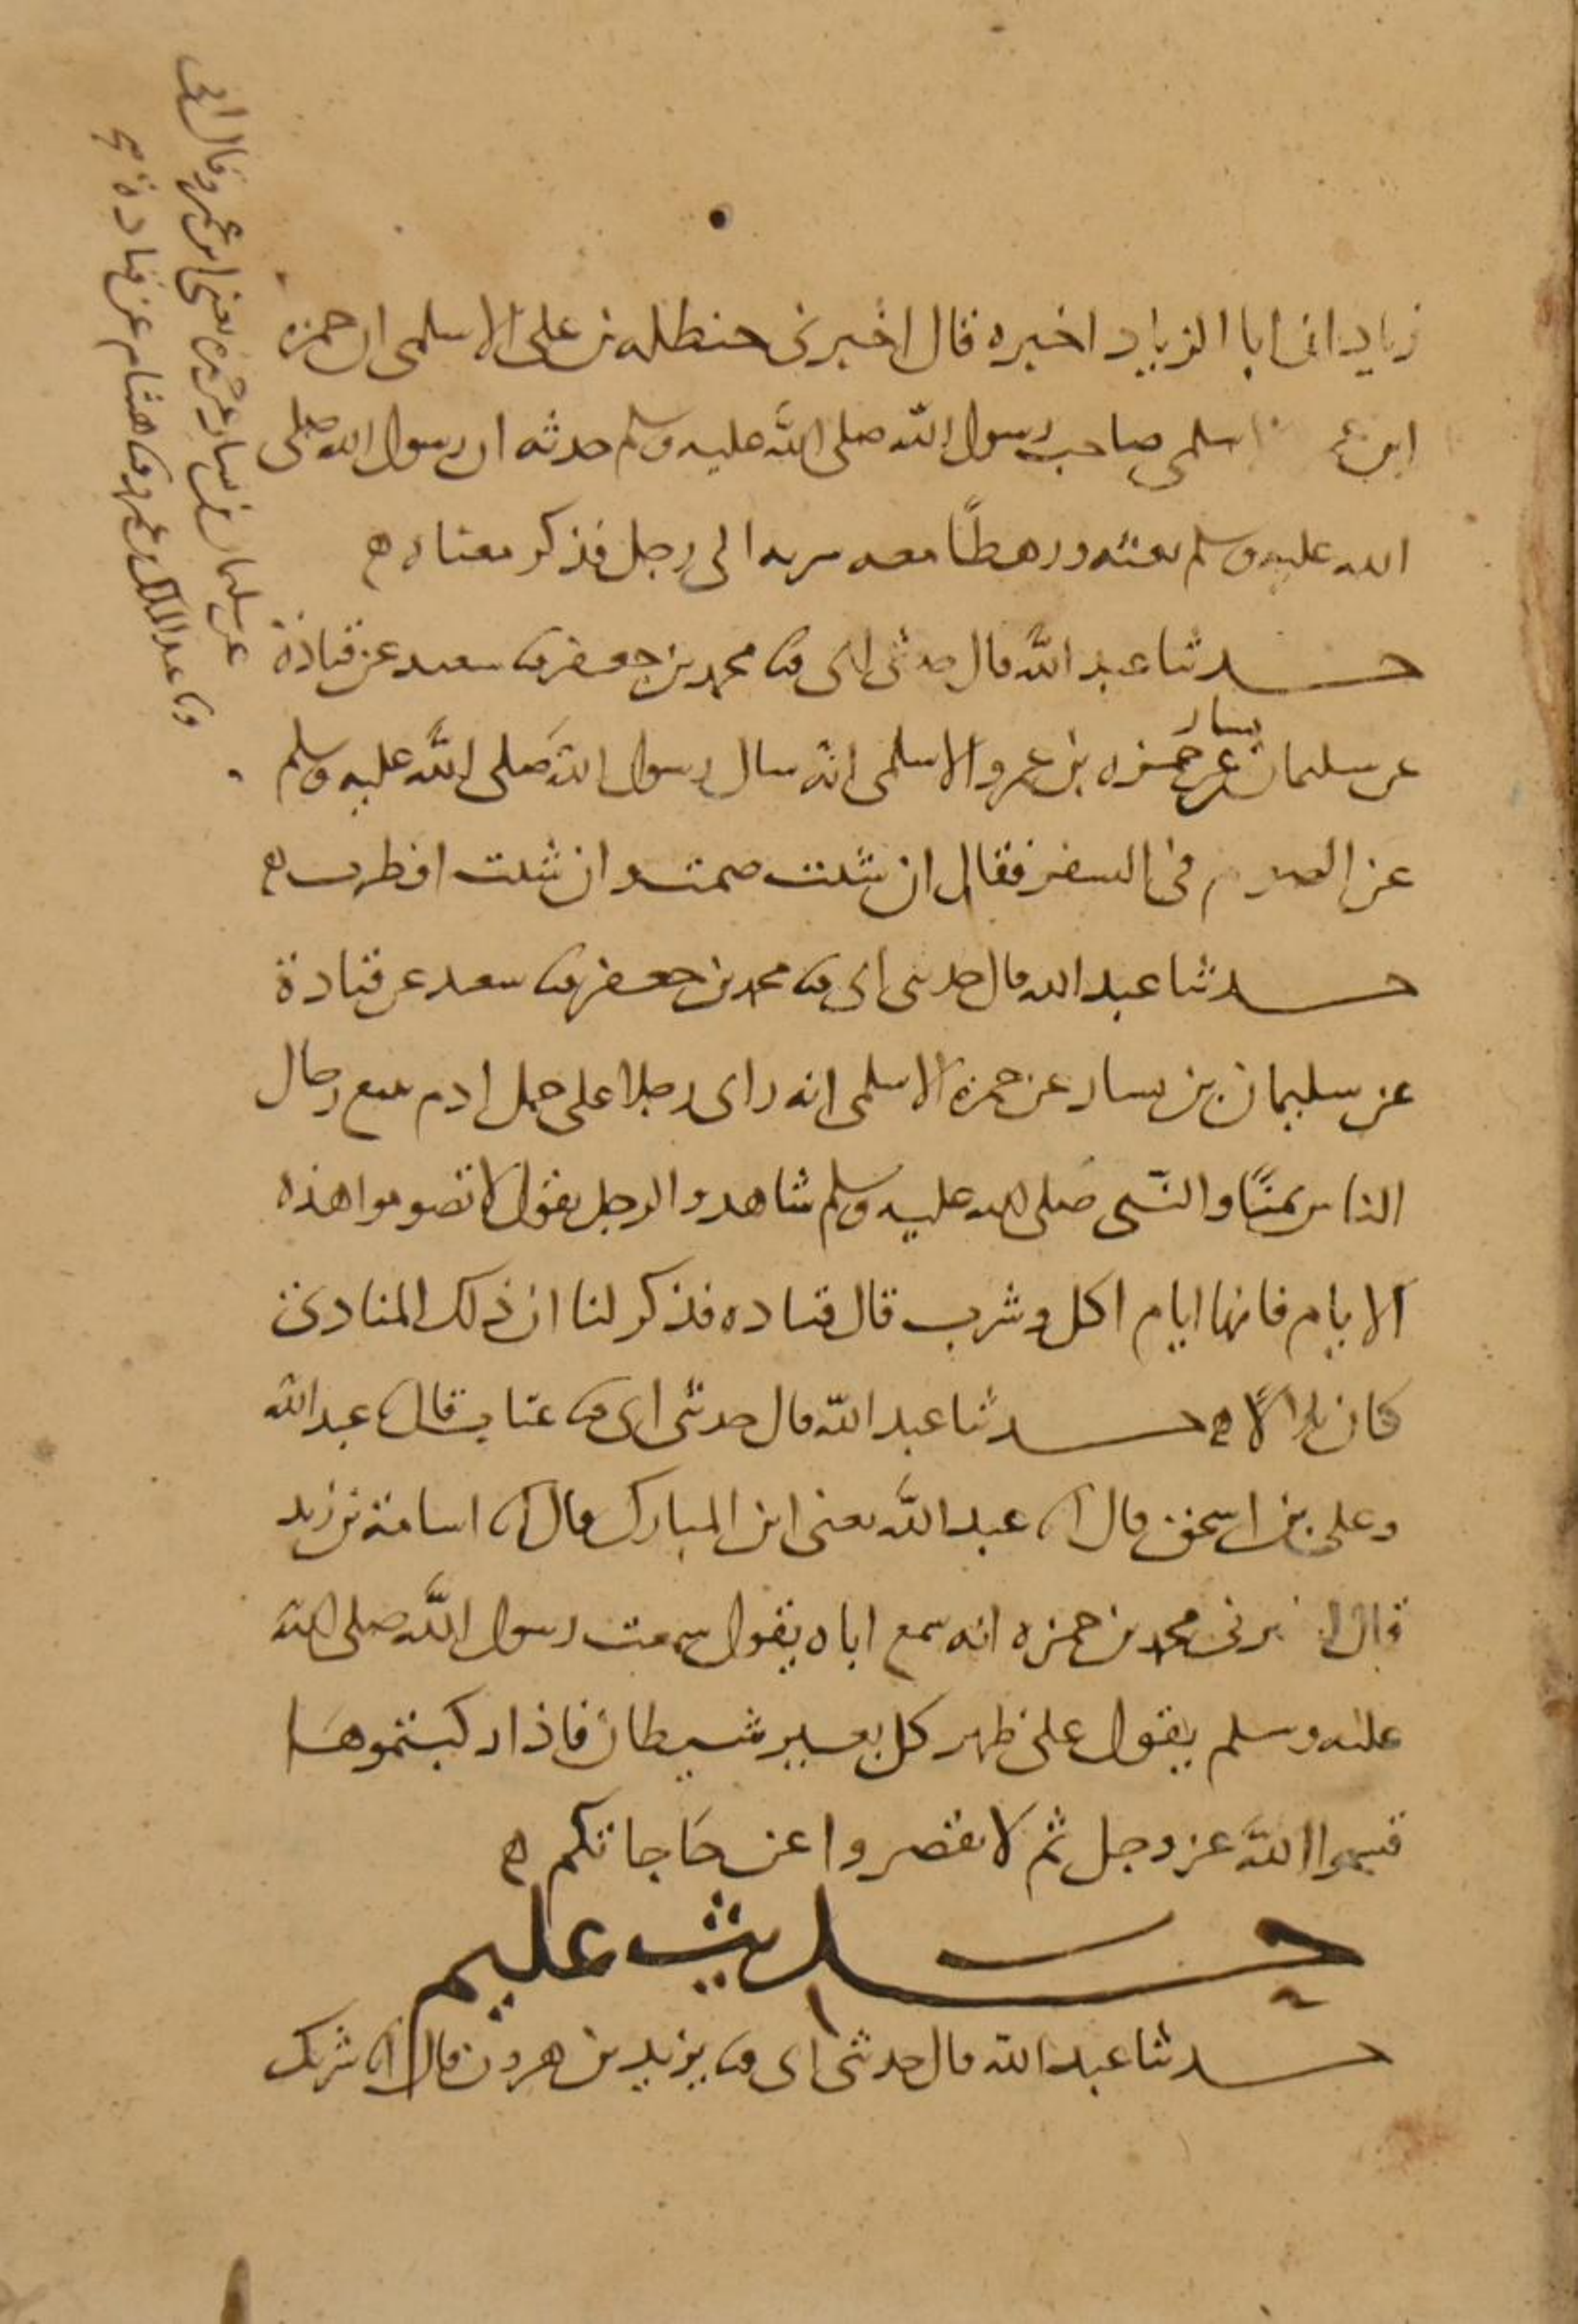 زياد ان ابا الزناد اخبره قال اخبرنى حنظله بن على الاسلمى ان حمزه
ابن الاسلمى صاحب رسول الله صلى الله عليه وسلم حدثه ان رسول الله صلى
الله عليه وسلم بعثه ورهطًا معه سريه الى رجل فذكر معناه
حدثنا عبد الله قال حدثنى ابى ثنا محمد بن جعفر ثنا سعيد عن قتادة
عن سليمان بن يسار عن حمزه بن عمرو الاسلمى انه سال رسول الله صلى الله عليه وسلم
عن الصوم فى السفر فقال ان شئت صمت وان شئت افطرت
حدثنا عبد الله قال حدثنى ابى ثنا محمد بن جعفر ثنا سعيد عن قتادة
عن سليمان بن يسار عن حمزة الاسلمى انه راى رجلا على جمل ادم يتبع رحال
الناس بمنًا والنبى صلى الله عليه وسلم شاهد والرجل يقول لا تصوموا هذه
الايام فانها ايام اكل وشرب قال قتاده فذكر لنا ان ذلك المنادى
كان بلالًا حدثنا عبد الله قال حدثنى ابى ثنا عتاب قال ثنا عبد الله
وعلى بن اسحق قال انا عبد الله يعنى ابن المبارك قال انا اسامة بن زيد
قال اخبرنى محمد بن حمزه انه سمع اباه يقول سمعت رسول الله صلى الله
عليه وسلم يقول على ظهر كل بعير شيطان فاذا ركبتموها
فسموا الله عز وجل ثم لا تقصروا عن حاجاتكم
حديث عليم
حدثنا عبد الله قال حدثنى ابى ثنا يزيد بن هرون قال انا شريك
عن سليمان بن يسار عن حمزة يعنى ابن عمرو قال ابى
وثنا عبد الملك بن عمرو ثنا هشام عن قتادة